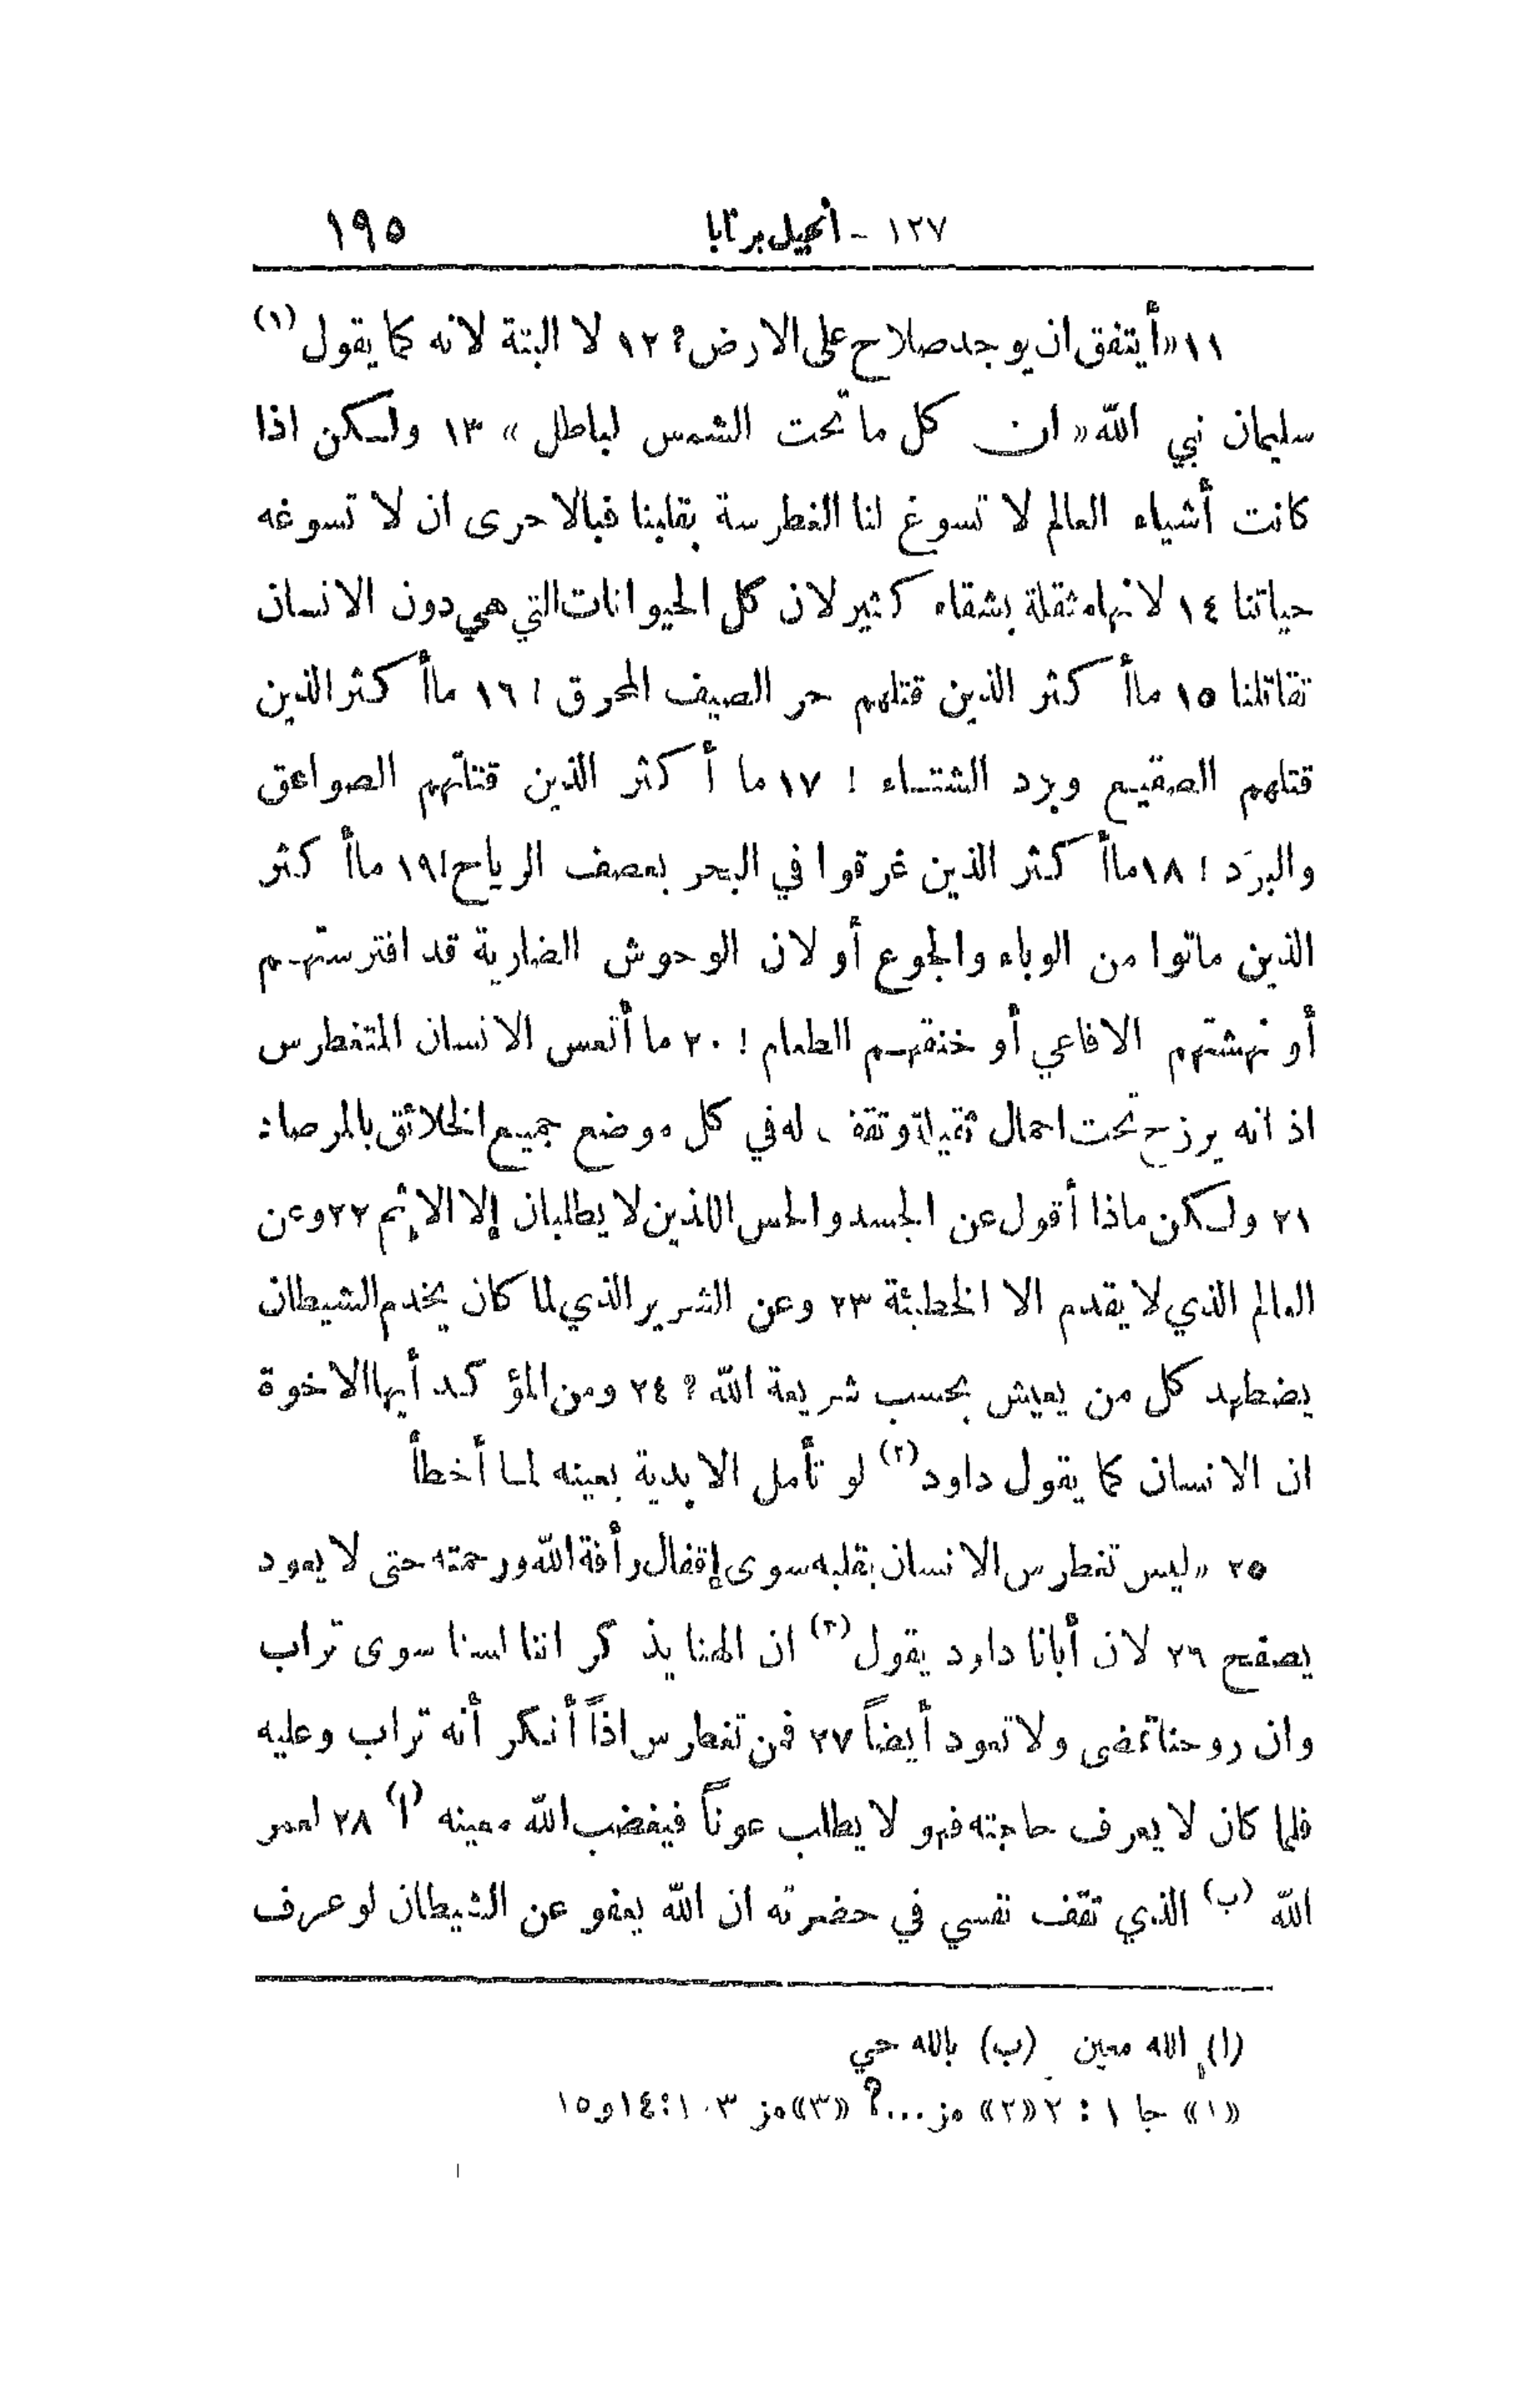 ١٢٧ - أنجيل برنابا ١٩٥
١١ «أيتفق ان يوجد صلاح على الارض؟ ١٢ لا البتة لانه كما يقول (١)
سليمان نبي الله « ان كل ما تحت الشمس لباطل » ١٣ ولكن اذا
كانت أشياء العالم لا تسوغ لنا الغطرسة بقلبنا فبالاحرى ان لا تسوغه
حياتنا ١٤ لانها مثقلة بشقاء كثير لان كل الحيوانات التي هي دون الانسان
تقاتلنا ١٥ ما أكثر الذين قتلهم حر الصيف المحرق ! ١٦ ما أكثر الذين
قتلهم الصقيع وبرد الشتاء ! ١٧ ما أكثر الذين قتلتهم الصواعق
والبرَد ! ١٨ ما أكثر الذين غرقوا في البحر بعصف الرياح ! ١٩ ما أكثر
الذين ماتوا من الوباء والجوع أو لان الوحوش الضارية قد افترستهم
أو نهشتهم الافاعي أو خنقهم الطعام ! ٢٠ ما أتعس الانسان المتغطرس
اذ انه يرزح تحت احمال ثقيلة وتقف له في كل موضع جميع الخلائق بالمرصاد
٢١ ولكن ماذا أقول عن الجسد والحس اللذين لا يطلبان إلا الاثم ٢٢ وعن
العالم الذي لا يقدم الا الخطيئة ٢٣ وعن الشرير الذي لما كان يخدم الشيطان
يضطهد كل من يعيش بحسب شريعة الله ؟ ٢٤ ومن المؤكد أيها الاخوة
ان الانسان كما يقول داود (٢) لو تأمل الابدية بعينه لما أخطأ
٢٥ «ليس تغطرس الانسان بقلبه سوى إقفال رأفة الله ورحمته حتى لا يعود
يصفح ٢٦ لان أبانا داود يقول (٣) ان الهنا يذكر اننا لسنا سوى تراب
وان روحنا تمضى ولا تعود أيضاً ٢٧ فمن تغطرس اذاً أنكر أنه تراب وعليه
فلما كان لا يعرف حاجته فهو لا يطلب عوناً فيغضب الله معينه (ا) ٢٨ لعمر
الله (ب) الذي تقف نفسي في حضرته ان الله يعفو عن الشيطان لو عرف
(ا) الله معين (ب) بالله حي
«١» جا ١ : ٢ «٢» مز ...؟ «٣» مز ١٠٣ : ١٤ و ١٥